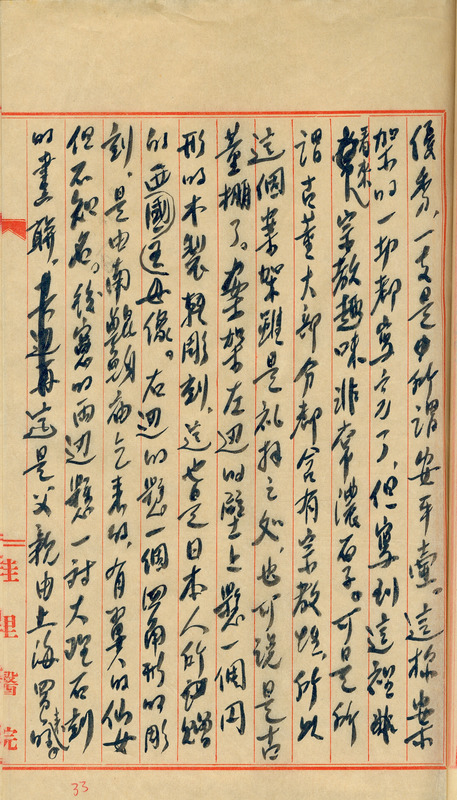 優秀,一支是所謂安平壺。這樣案
架的一切都寫完了,但寫到這裡非
看來宗教趣味非常濃厚了。可是所
謂古董大部分都含有宗教性,所以
這個案架雖是禮拜之處,也可說是古
董棚了。案架左邊的壁上懸一個円
形的木製雕刻,這也是日本人所贈
的西國聖母像。右邊的懸一個四角形的彫
刻,是由南鯤鯓廟乞來的,有翼的仙女
但不知名。後窓的兩邊懸一對大理石刻
的畫聯,這是父親由上海買來的。
佳里醫院
33